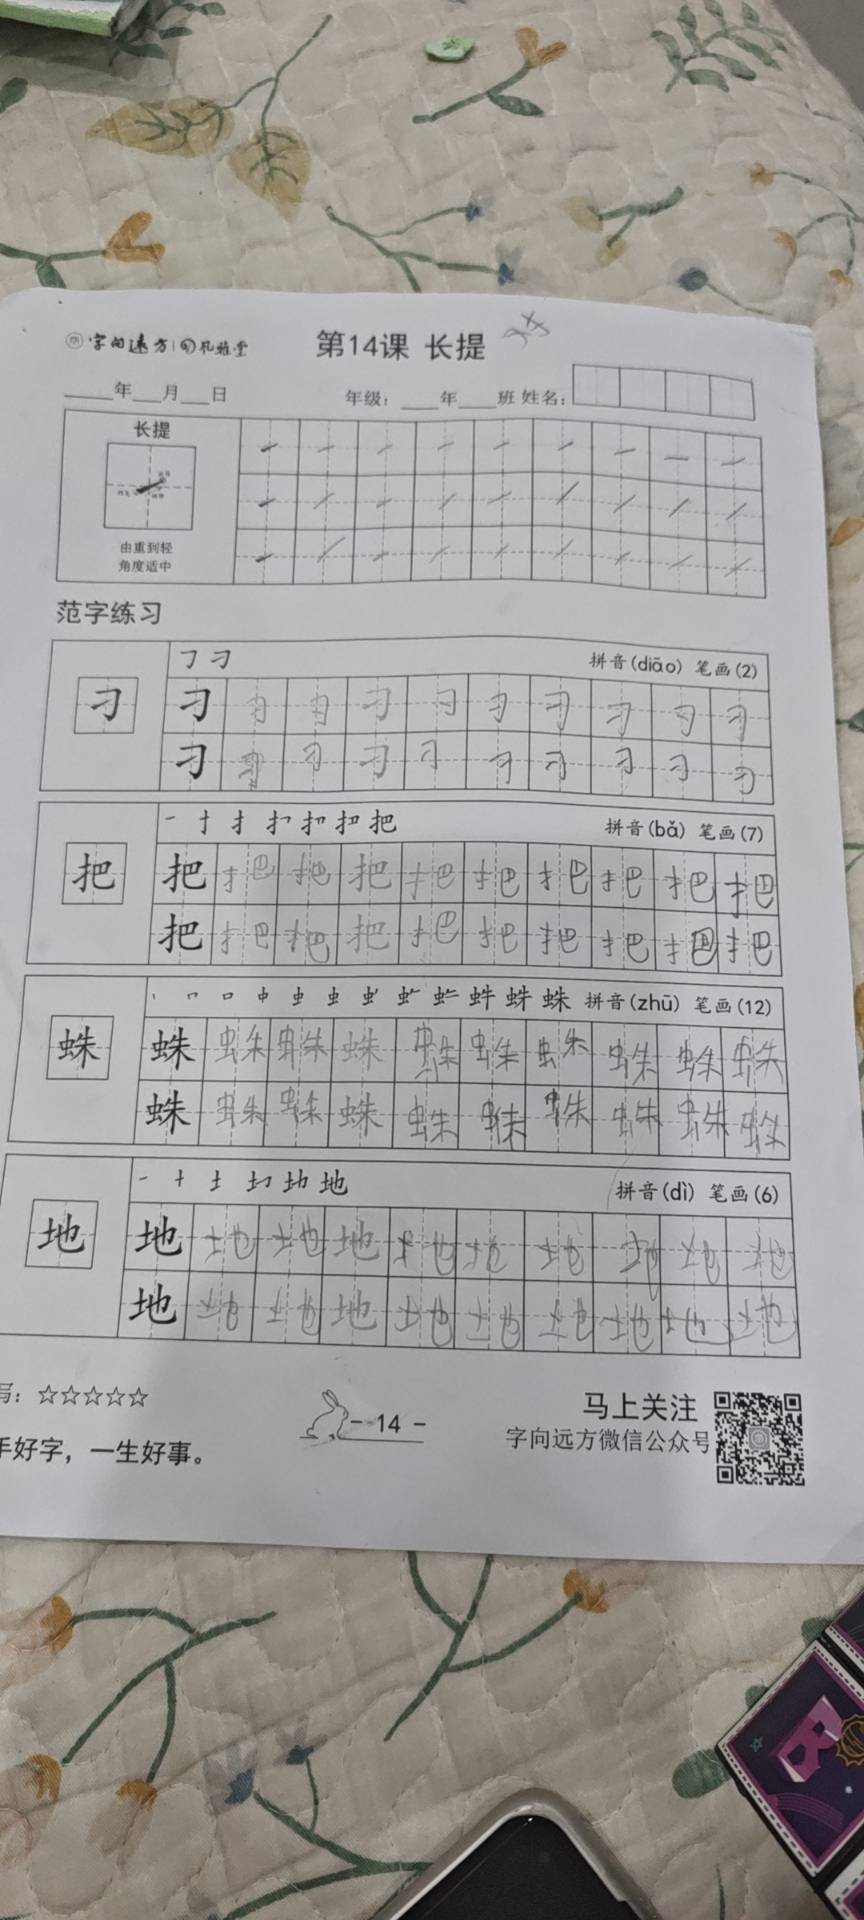 字向远方
第14课 长提
____年___月___日 年级：____年____班 姓名：
长提
由重到轻
角度适中
范字练习
㇆ 刁 拼音(diāo) 笔画(2)
刁 刁 刁 刁 刁 刁 刁 刁 刁 刁 刁
刁 刁 刁 刁 刁 刁 刁 刁 刁
拼音(bǎ) 笔画(7)
把 把 把 把 把 把 把 把 把 把 把
把 把 把 把 把 把 把 把 把 把
拼音(zhū) 笔画(12)
蛛 蛛 蛛 蛛 蛛 蛛 蛛 蛛 蛛 蛛 蛛
蛛 蛛 蛛 蛛 蛛 蛛 蛛 蛛 蛛 蛛
一 十 土 圠 地 地 拼音(dì) 笔画(6)
地 地 地 地 地 地 地 地 地 地 地
地 地 地 地 地 地 地 地 地 地
写：☆☆☆☆☆
手好字，一生好事。
- 14 -
马上关注
字向远方微信公众号